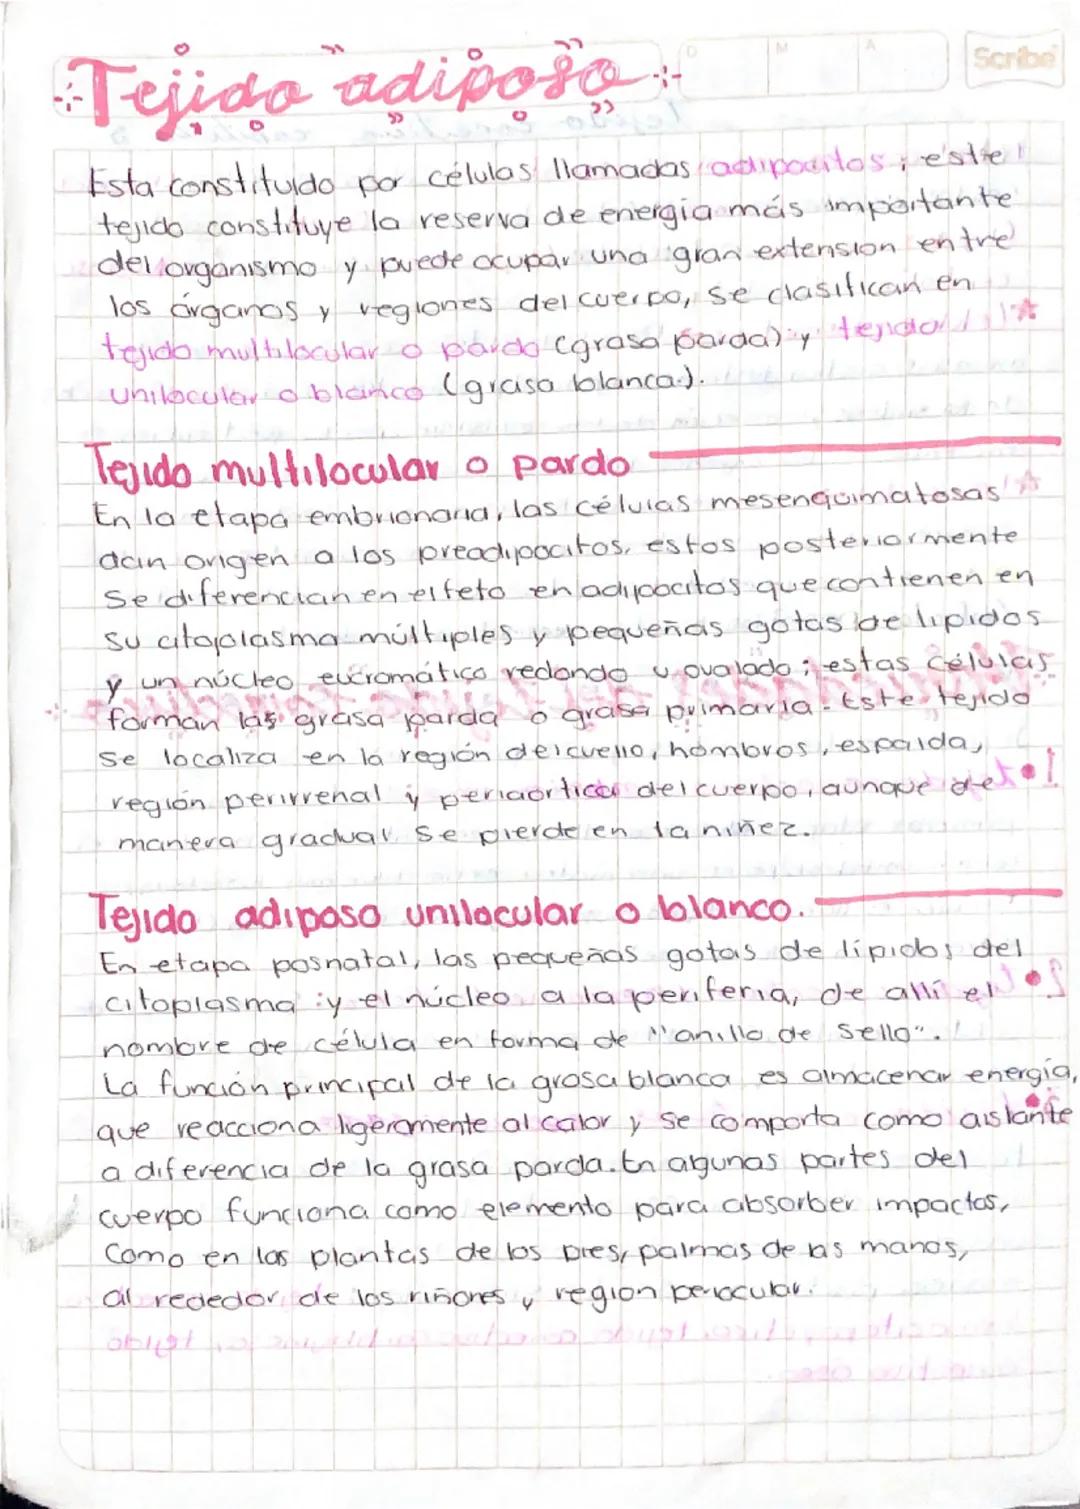 Tejido adiposo
D M A Scribe
Esta constituido por células llamadas adipocitos; este
tejido constituye la reserva de energía más importante
del organismo y puede ocupar una gran extension entre
los órganos y regiones del cuerpo, se clasifican en
tejido multilocular o pardo (grasa parda) y tejido
unilocular o blanco (grasa blanca).
Tejido multilocular o pardo
En la etapa embrionaria, las células mesenquimatosas
dan origen a los preadipocitos, estos posteriormente
se diferencian en el feto en adipocitos que contienen en
su citoplasma múltiples y pequeñas gotas de lipidos
y un núcleo eucromático redondo u ovalado; estas células
forman las grasa parda o grasa primaria. Este tejido
se localiza en la región del cuello, hombros, espalda,
región perirrenal y periaortica del cuerpo, aunque de
manera gradual se pierde en la niñez.
Tejido adiposo unilocular o blanco.
En etapa posnatal, las pequeñas gotas de lípidos del
citoplasma y el núcleo a la periferia, de allí el
nombre de célula en forma de "anillo de sello".
La función principal de la grasa blanca es almacenar energía,
que reacciona ligeramente al calor y se comporta como aislante
a diferencia de la grasa parda. En algunas partes del
cuerpo funciona como elemento para absorber impactos,
Como en las plantas de los pies, palmas de las manos,
al rededor de los riñones y region periocular.